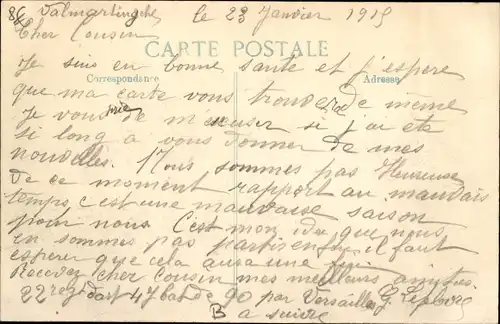 le 23 Janvier 1915
Cher Cousin
CARTE POSTALE
Je suis en bonne santé et j'espere
Correspondance Adresse
que ma carte vous trouvera de même
Je vous prie de m'excuser si j'ai eté
si long a vous donner de mes
nouvelles. Nous sommes pas Heureuse
de ce moment rapport au mauvais
temps c'est une mauvaise saison
pour nous. C'est mon idée que nous
en sommes pas parti enfin il faut
esperer que cela aura une fin
Recevez cher Cousin mes meilleurs amities
22 reg d'art 47 bat de 90 par Versailles G.
a suivre